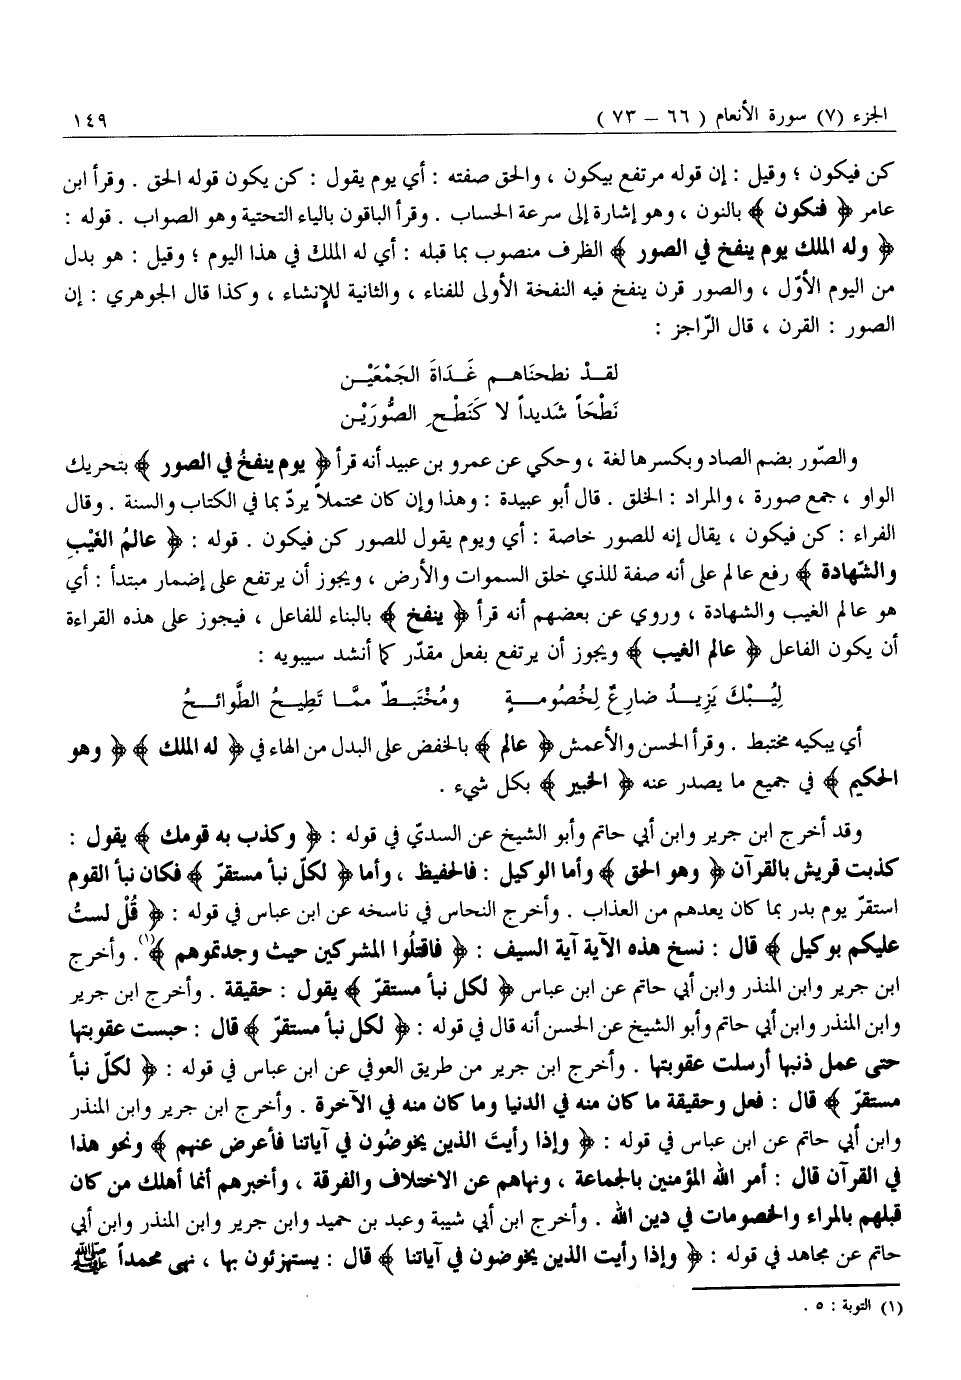 الجزء (٧) سورة الأنعام ( ٦٦ – ٧٣ ) ١٤٩
كن فيكون ؛ وقيل : إن قوله مرتفع بيكون ، والحق صفته : أي يوم يقول : كن يكون قوله الحق . وقرأ ابن
عامر ﴿ فنكون ﴾ بالنون ، وهو إشارة إلى سرعة الحساب . وقرأ الباقون بالياء التحتية وهو الصواب . قوله :
﴿ وله الملك يوم ينفخ في الصور ﴾ الظرف منصوب بما قبله : أي له الملك في هذا اليوم ؛ وقيل : هو بدل
من اليوم الأوّل ، والصور قرن ينفخ فيه النفخة الأولى للفناء ، والثانية للإنشاء ، وكذا قال الجوهري : إن
الصور : القرن ، قال الرّاجز :
لقـدْ نطحنَاهـم غَـدَاةَ الجَمْعَيْـن
نَطْحَاً شَديداً لا كَنَطْحِ الصُّورَيْـن
والصّور بضم الصاد وبكسرها لغة ، وحكي عن عمرو بن عبيد أنه قرأ ﴿ يوم ينفخُ في الصور ﴾ بتحريك
الواو ، جمع صورة ، والمراد : الخلق . قال أبو عبيدة : وهذا وإن كان محتملاً يردّ بما في الكتاب والسنة . وقال
الفراء : كن فيكون ، يقال إنه للصور خاصة : أي ويوم يقول للصور كن فيكون . قوله : ﴿ عالمُ الغيْبِ
والشّهادة ﴾ رفع عالم على أنه صفة للذي خلق السموات والأرض ، ويجوز أن يرتفع على إضمار مبتدأ : أي
هو عالم الغيب والشهادة ، وروي عن بعضهم أنه قرأ ﴿ ينفخ ﴾ بالبناء للفاعل ، فيجوز على هذه القراءة
أن يكون الفاعل ﴿ عالم الغيب ﴾ ويجوز أن يرتفع بفعل مقدّر كما أنشد سيبويه :
لِيُـبْكَ يَزِيـدُ ضارِعٌ لِخُصُومـةٍ ومُخْتَبـطٌ ممَّـا تَطِيـحُ الطَّوائـحُ
أي يبكيه مختبط . وقرأ الحسن والأعمش ﴿ عالم ﴾ بالخفض على البدل من الهاء في ﴿ له الملك ﴾ ﴿ وهو
الحكيم ﴾ في جميع ما يصدر عنه ﴿ الخبير ﴾ بكل شيء .
وقد أخرج ابن جرير وابن أبي حاتم وأبو الشيخ عن السديّ في قوله : ﴿ وكذب به قومك ﴾ يقول :
كذبت قريش بالقرآن ﴿ وهو الحق ﴾ وأما الوكيل : فالحفيظ ، وأما ﴿ لكلّ نبأ مستقرّ ﴾ فكان نبأ القوم
استقرّ يوم بدر بما كان يعدهم من العذاب . وأخرج النحاس في ناسخه عن ابن عباس في قوله : ﴿ قُلْ لستُ
عليكم بوكيل ﴾ قال : نسخ هذه الآية آية السيف : ﴿ فاقتلُوا المشركين حيث وجدتموهم ﴾(١) . وأخرج
ابن جرير وابن المنذر وابن أبي حاتم عن ابن عباس ﴿ لكل نبأ مستقرّ ﴾ يقول : حقيقة . وأخرج ابن جرير
وابن المنذر وابن أبي حاتم وأبو الشيخ عن الحسن أنه قال في قوله : ﴿ لكل نبأ مستقرّ ﴾ قال : حبست عقوبتها
حتى عمل ذنبها أرسلت عقوبتها . وأخرج ابن جرير من طريق العوفي عن ابن عباس في قوله : ﴿ لكلّ نبأ
مستقرّ ﴾ قال : فعل وحقيقة ما كان منه في الدنيا وما كان منه في الآخرة . وأخرج ابن جرير وابن المنذر
وابن أبي حاتم عن ابن عباس في قوله : ﴿ وإذا رأيتَ الذين يخوضُون في آياتنا فأعرض عنهم ﴾ ونحو هذا
في القرآن قال : أمر الله المؤمنين بالجماعة ، ونهاهم عن الاختلاف والفرقة ، وأخبرهم أنما أهلك من كان
قبلهم بالمراء والخصومات في دين الله . وأخرج ابن أبي شيبة وعبد بن حميد وابن جرير وابن المنذر وابن أبي
حاتم عن مجاهد في قوله : ﴿ وإذا رأيت الذين يخوضون في آياتنا ﴾ قال : يستهزئون بها ، نهى محمداً ﷺ
(١) التوبة : ٥ .